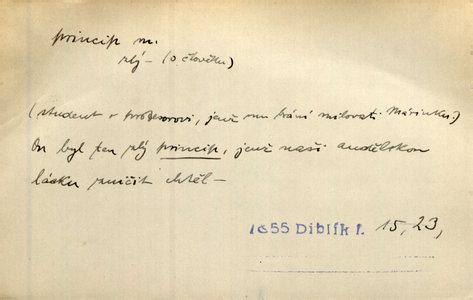 princip m.
zlý – (o člověku)
(student o profesorovi, jenž mu brání milovati Márinku.)
On byl ten zlý princip, jenž naši andělskou
lásku zničit chtěl –
1655 Diblík 1. 15, 23,